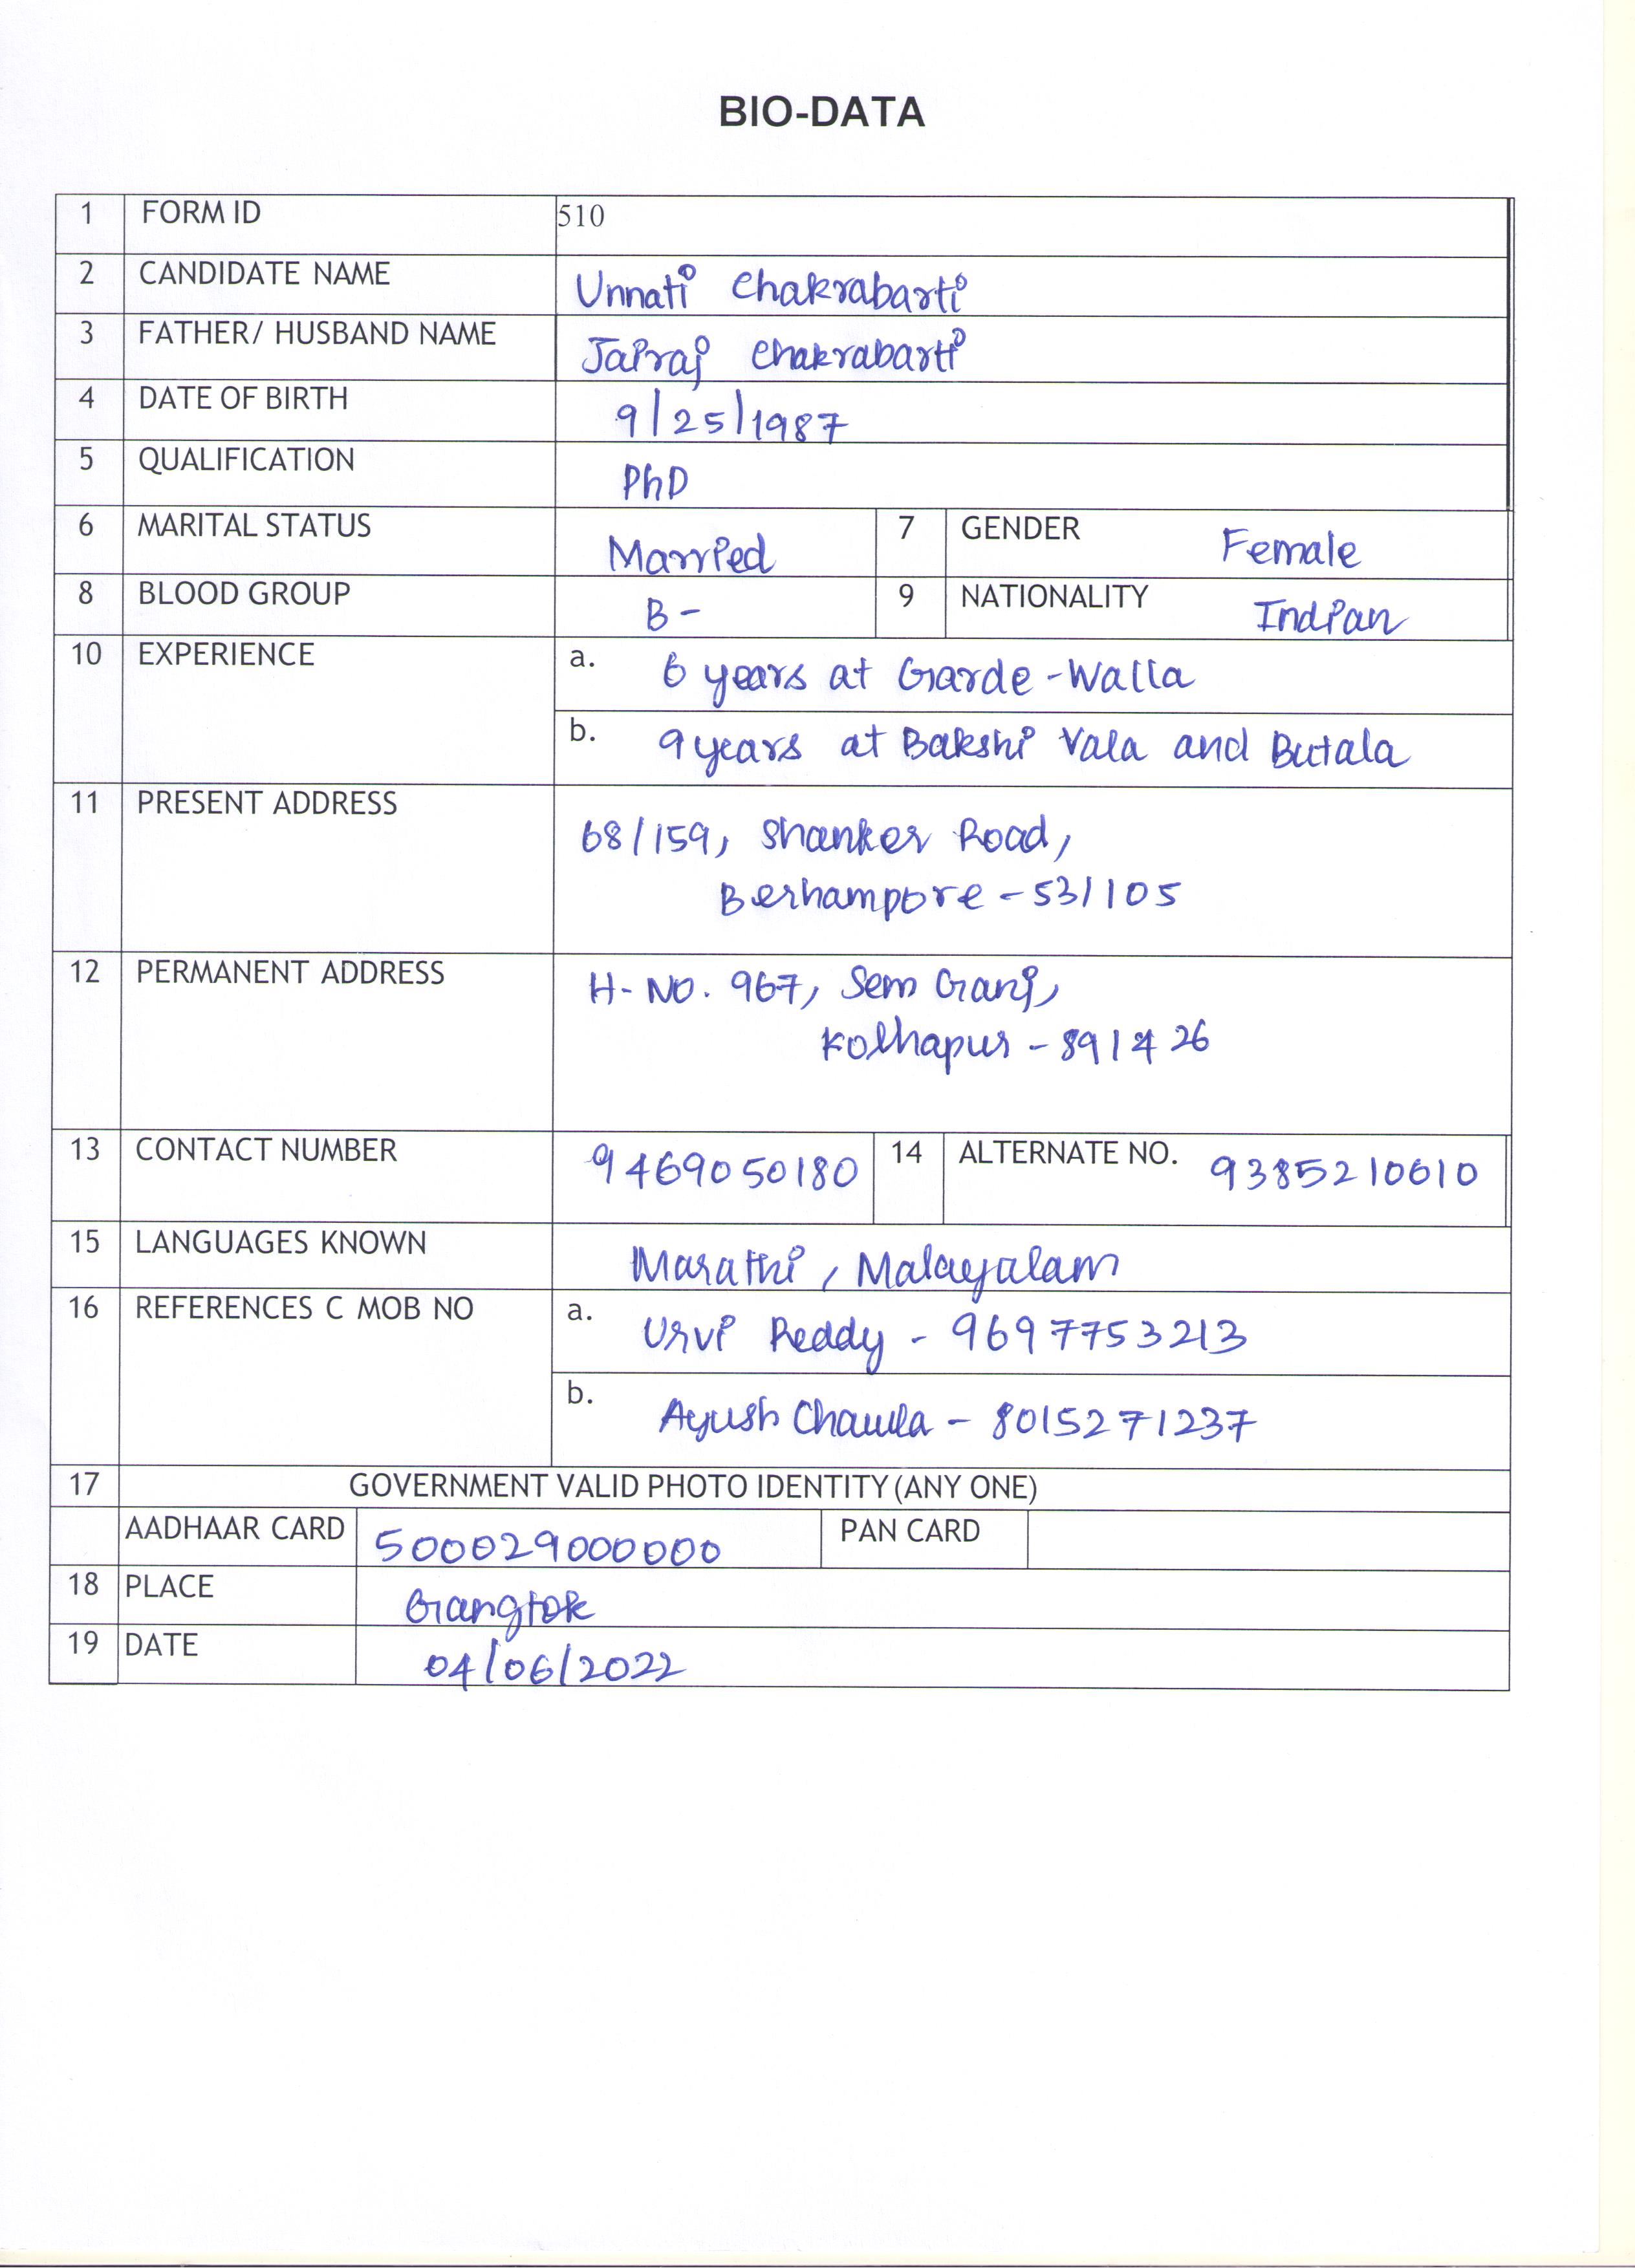 BIO-DATA
1 FORM ID 510
2 CANDIDATE NAME Unnati Chakrabarti
3 FATHER/ HUSBAND NAME Jairaj Chakrabarti
4 DATE OF BIRTH 9/25/1987
5 QUALIFICATION PhD
6 MARITAL STATUS Married 7 GENDER Female
8 BLOOD GROUP B- 9 NATIONALITY Indian
10 EXPERIENCE a. 6 years at Garde-Walla
b. 9 years at Bakshi Vala and Butala
11 PRESENT ADDRESS 68/159, Shanker Road,
Berhampore - 531105
12 PERMANENT ADDRESS H-NO. 967, Sem Ganj,
Kolhapur - 891426
13 CONTACT NUMBER 9469050180 14 ALTERNATE NO. 9385210610
15 LANGUAGES KNOWN Marathi, Malayalam
16 REFERENCES C MOB NO a. Urvi Reddy - 9697753213
b. Ayush Chawla - 8015271237
17 GOVERNMENT VALID PHOTO IDENTITY (ANY ONE)
AADHAAR CARD 500029000000 PAN CARD
18 PLACE Gangtok
19 DATE 04/06/2022